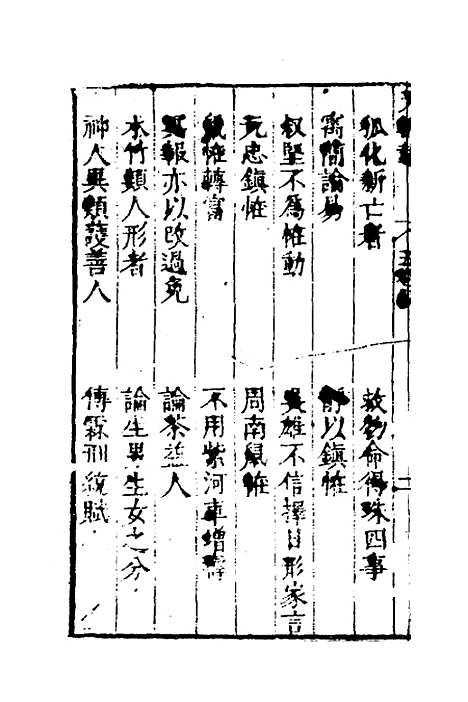 狐化新亡者 救物命得珠四事
寓簡論易 靜以鎮恠
叔堅不爲恠動 吳雄不信擇日形家言
元忠鎮恠 周南鼠恠
鼠恠轉富 不用紫河車增壽
冤報亦以改過免 論茶益人
木竹類人形者 論生男生女之分
神人異類護善人 傅霖刑統賦